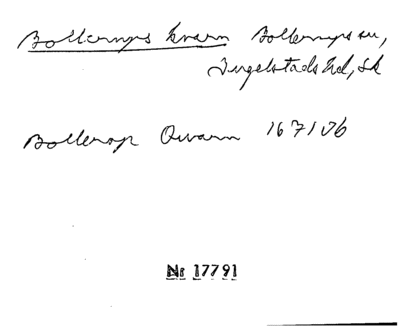 Bollerups kvarn Bollerups sn,
Ingelstads hd, Sk
Bollerop Qvarn 1671 Jb
Nr 17791